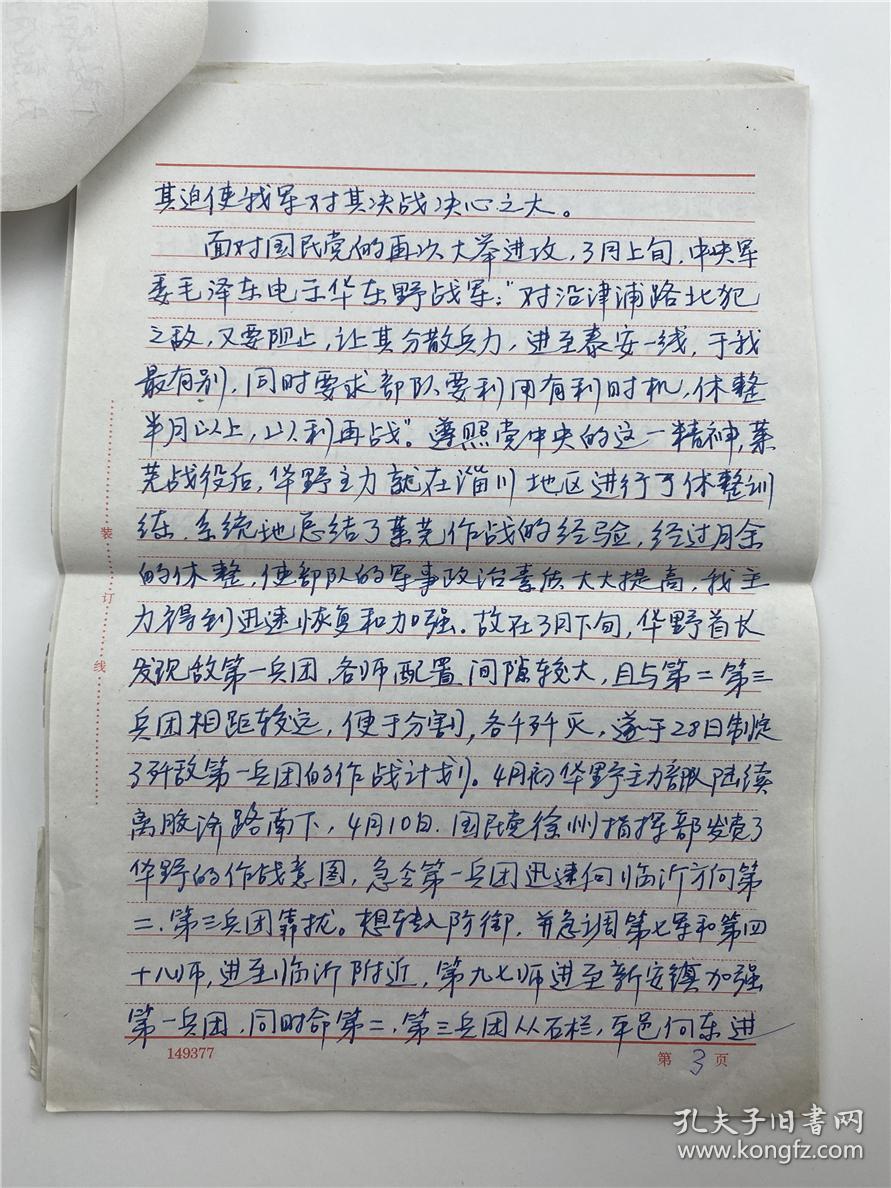 其迫使我军对其决战决心之大。
面对国民党的再次大举进攻，3月上旬，中央军
委毛泽东电示华东野战军："对沿津浦路北犯
之敌，又要阻止，让其分散兵力，进至泰安一线，于我
最有别，同时要求部队要利用有利时机，休整
半月以上，以利再战"。遵照党中央的这一精神，莱
芜战役后，华野主力就在淄川地区进行了休整训
练，系统地总结了莱芜作战的经验，经过月余
的休整，使部队的军事政治素质大大提高，我主
力得到迅速恢复和加强。故在3月下旬，华野首长
发现敌第一兵团，各师配置间隙较大，且与第二第三
兵团相距较远，便于分割，各个歼灭，遂于28日制定
了歼敌第一兵团的作战计划。4月初华野主力部队陆续
离胶济路南下，4月10日，国民党徐州指挥部发觉了
华野的作战意图，急令第一兵团迅速向临沂方向第
二、第三兵团靠拢。想转入防御，并急调第七军和第四
十八师，进至临沂附近，第九七师进至新安镇加强
第一兵团，同时命第二，第三兵团从石栏，平邑向东进
装
订
线
149377
第 3 页
孔夫子旧书网
www.kongfz.com